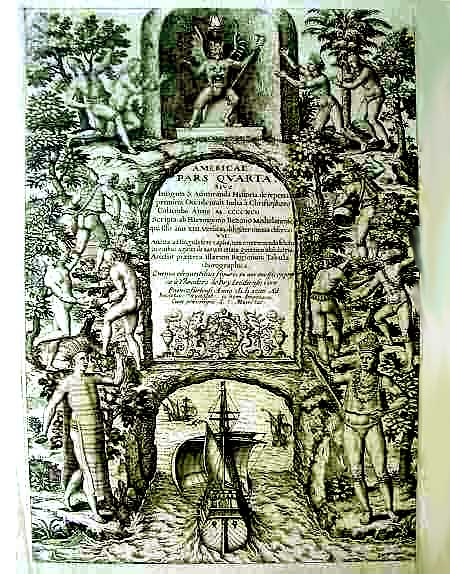 AMERICAE
PARS QVARTA.
SIVE
Insignis & Admiranda Historia de reperta
primùm Occidentali India à Christophoro
Columbo Anno M. CCCCXCII
Scripta ab Hieronymo Bezono Mediolanense,
qui istic versatus, omnia
Addita ad singula fere capita, non contemnenda scholia,
in quibus agitur de earum etiam gentium idololatria.
Accessit præterea illarum Regionum Tabula
chorographica.
Omnia elegantibus figuris in aes incisis expressa
à Theodoro de Bry Leodiense, cive
Francofurtensi, Anno Ad
Cum privilegio S. C. Maiestat.